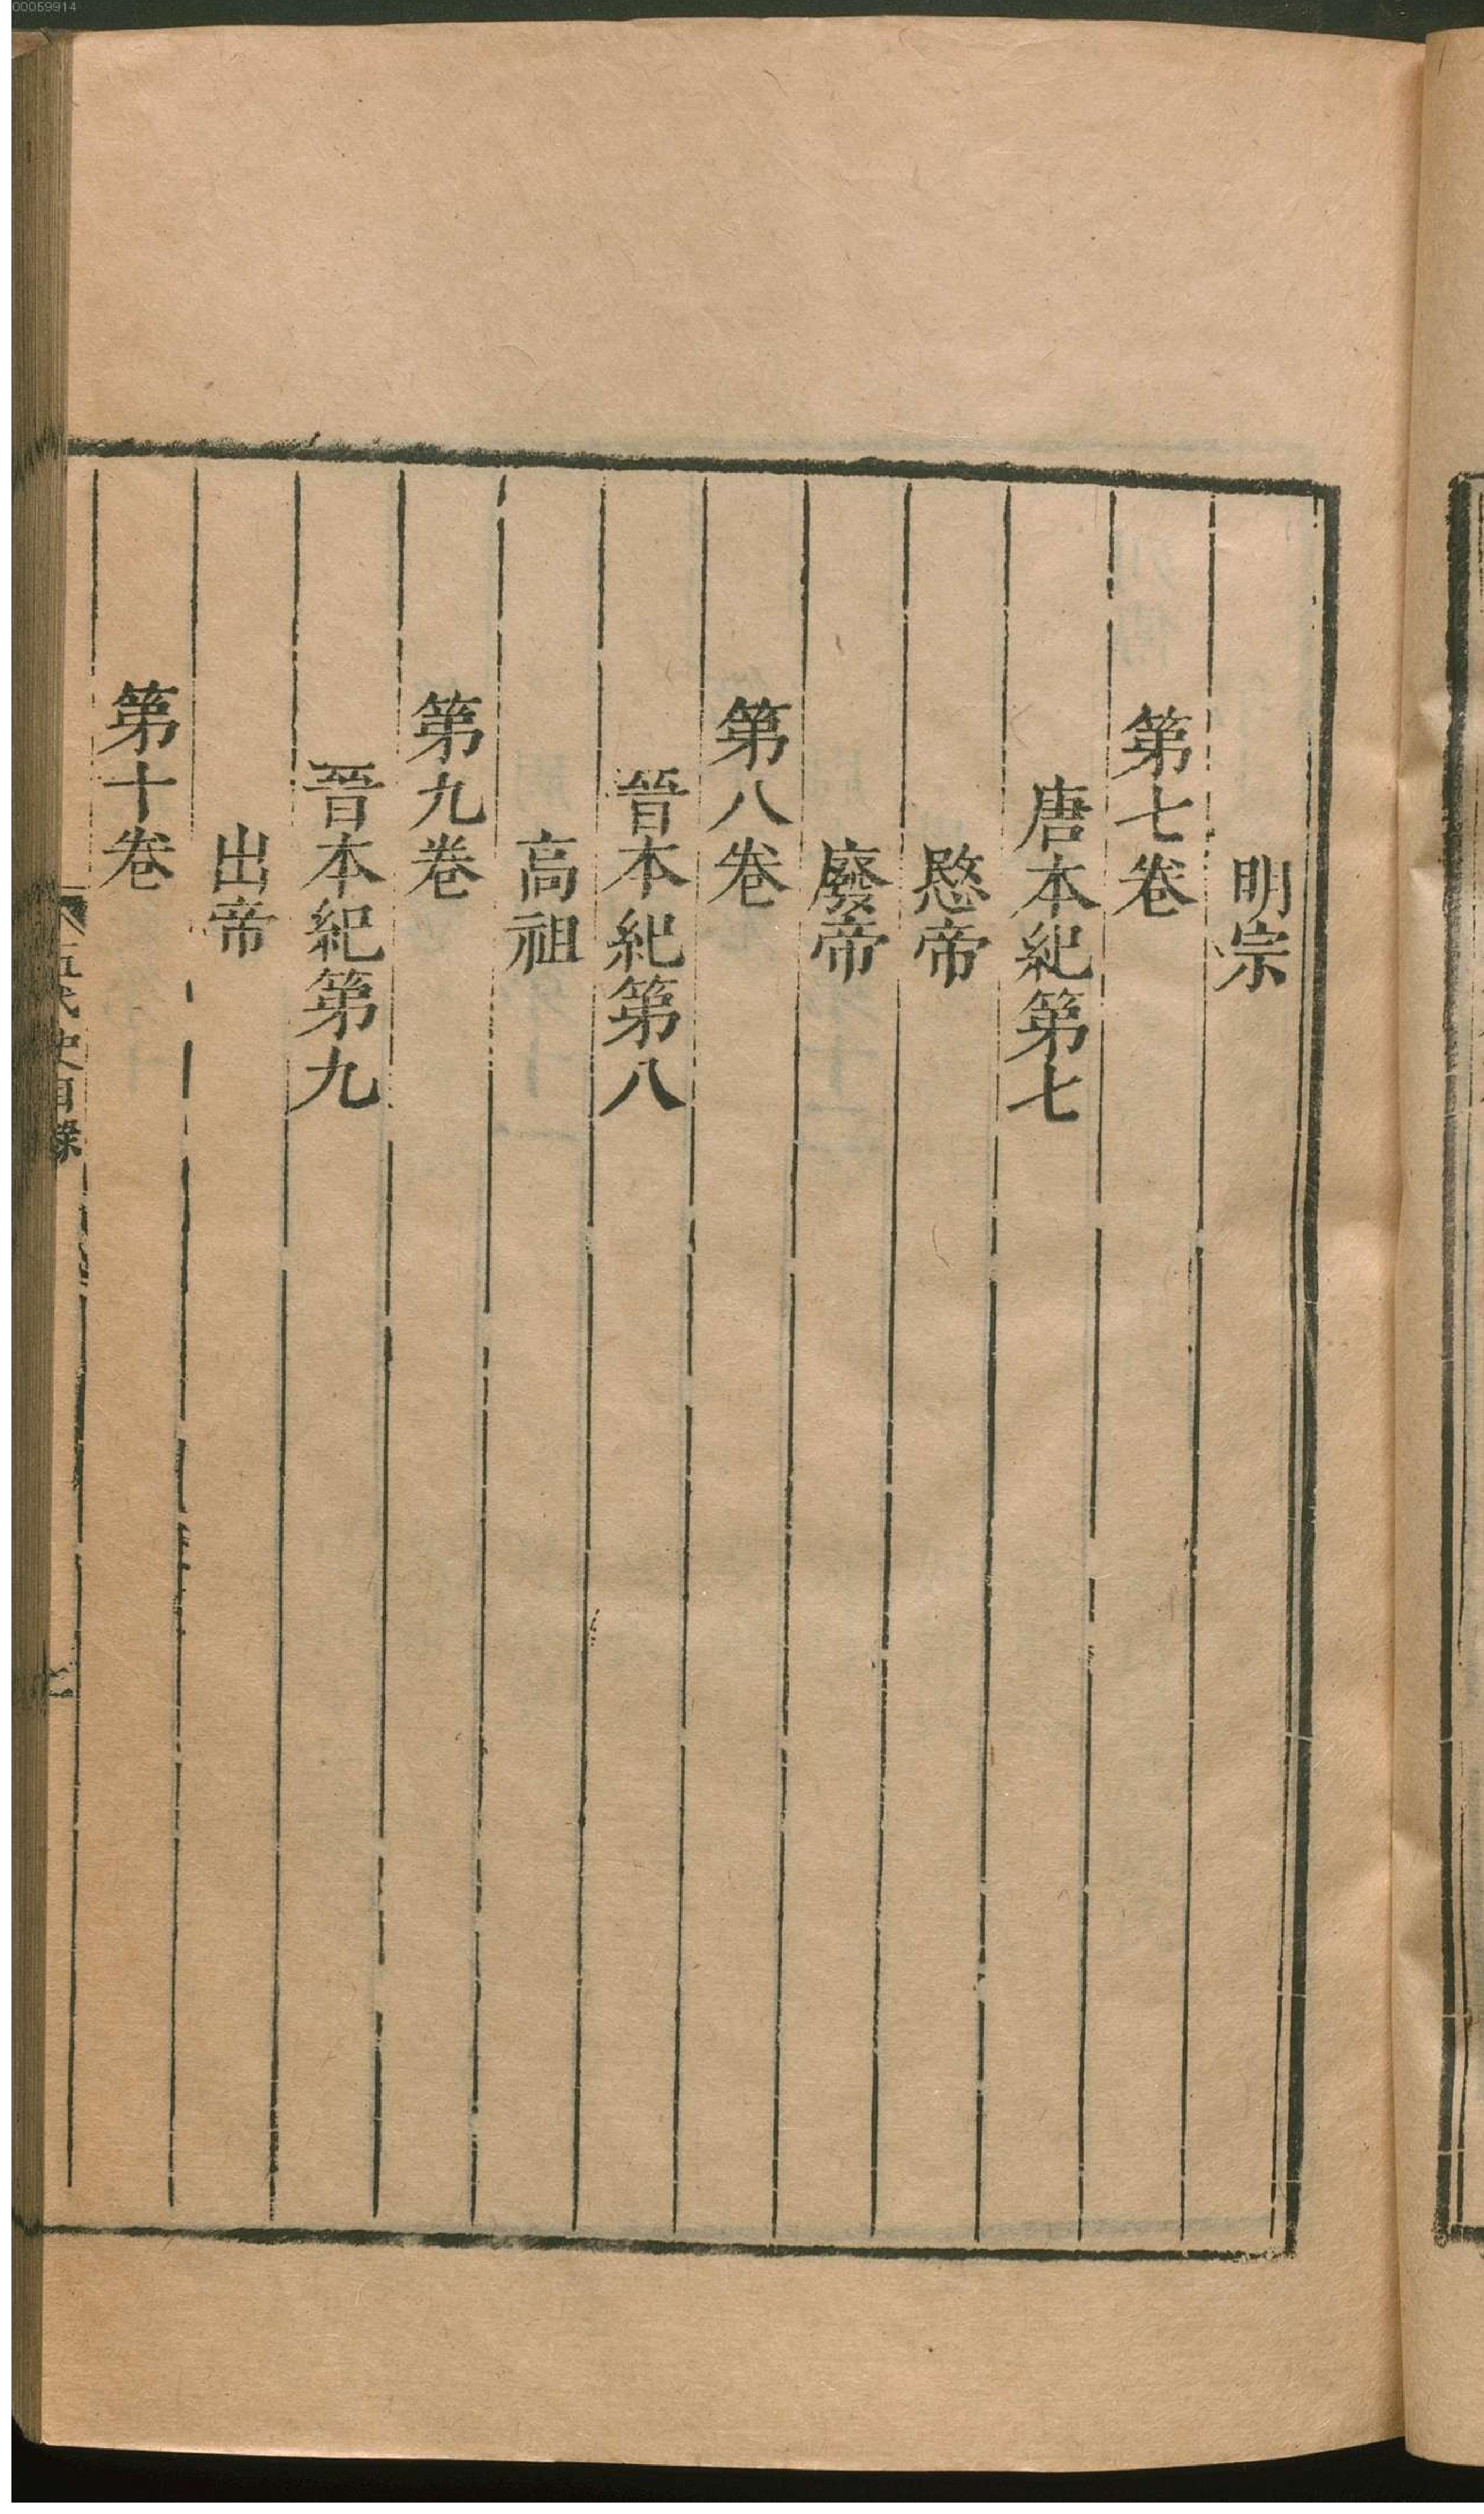 00059914
明宗
第七卷
唐本紀第七
愍帝
廢帝
第八卷
晉本紀第八
高祖
第九卷
晉本紀第九
出帝
第十卷
五代史目錄